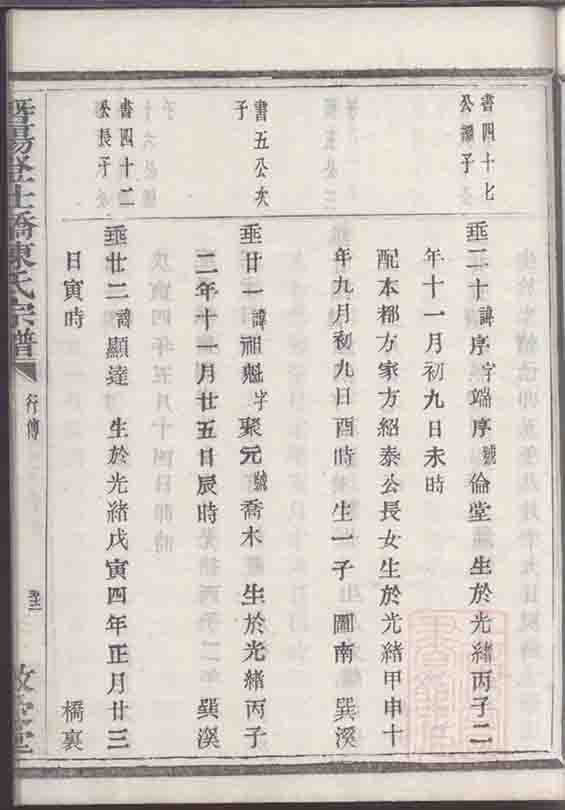 書四十七
公繼子
垂二十諱序字端序號倫堂　生於光緒丙子二
年十一月初九日未時
配本都方家方紹泰公長女生於光緒甲申十
年九月初九日酉時　生一子圖南　巽溪
書五公次
子
垂廿一諱祖魁字聚元號喬木　生於光緒丙子
二年十一月廿五日辰時　巽溪
書四十二
公長子
垂廿二諱顯達　生於光緒戊寅四年正月廿三
日寅時　橋裏
暨陽登仕橋陳氏宗譜
行傳